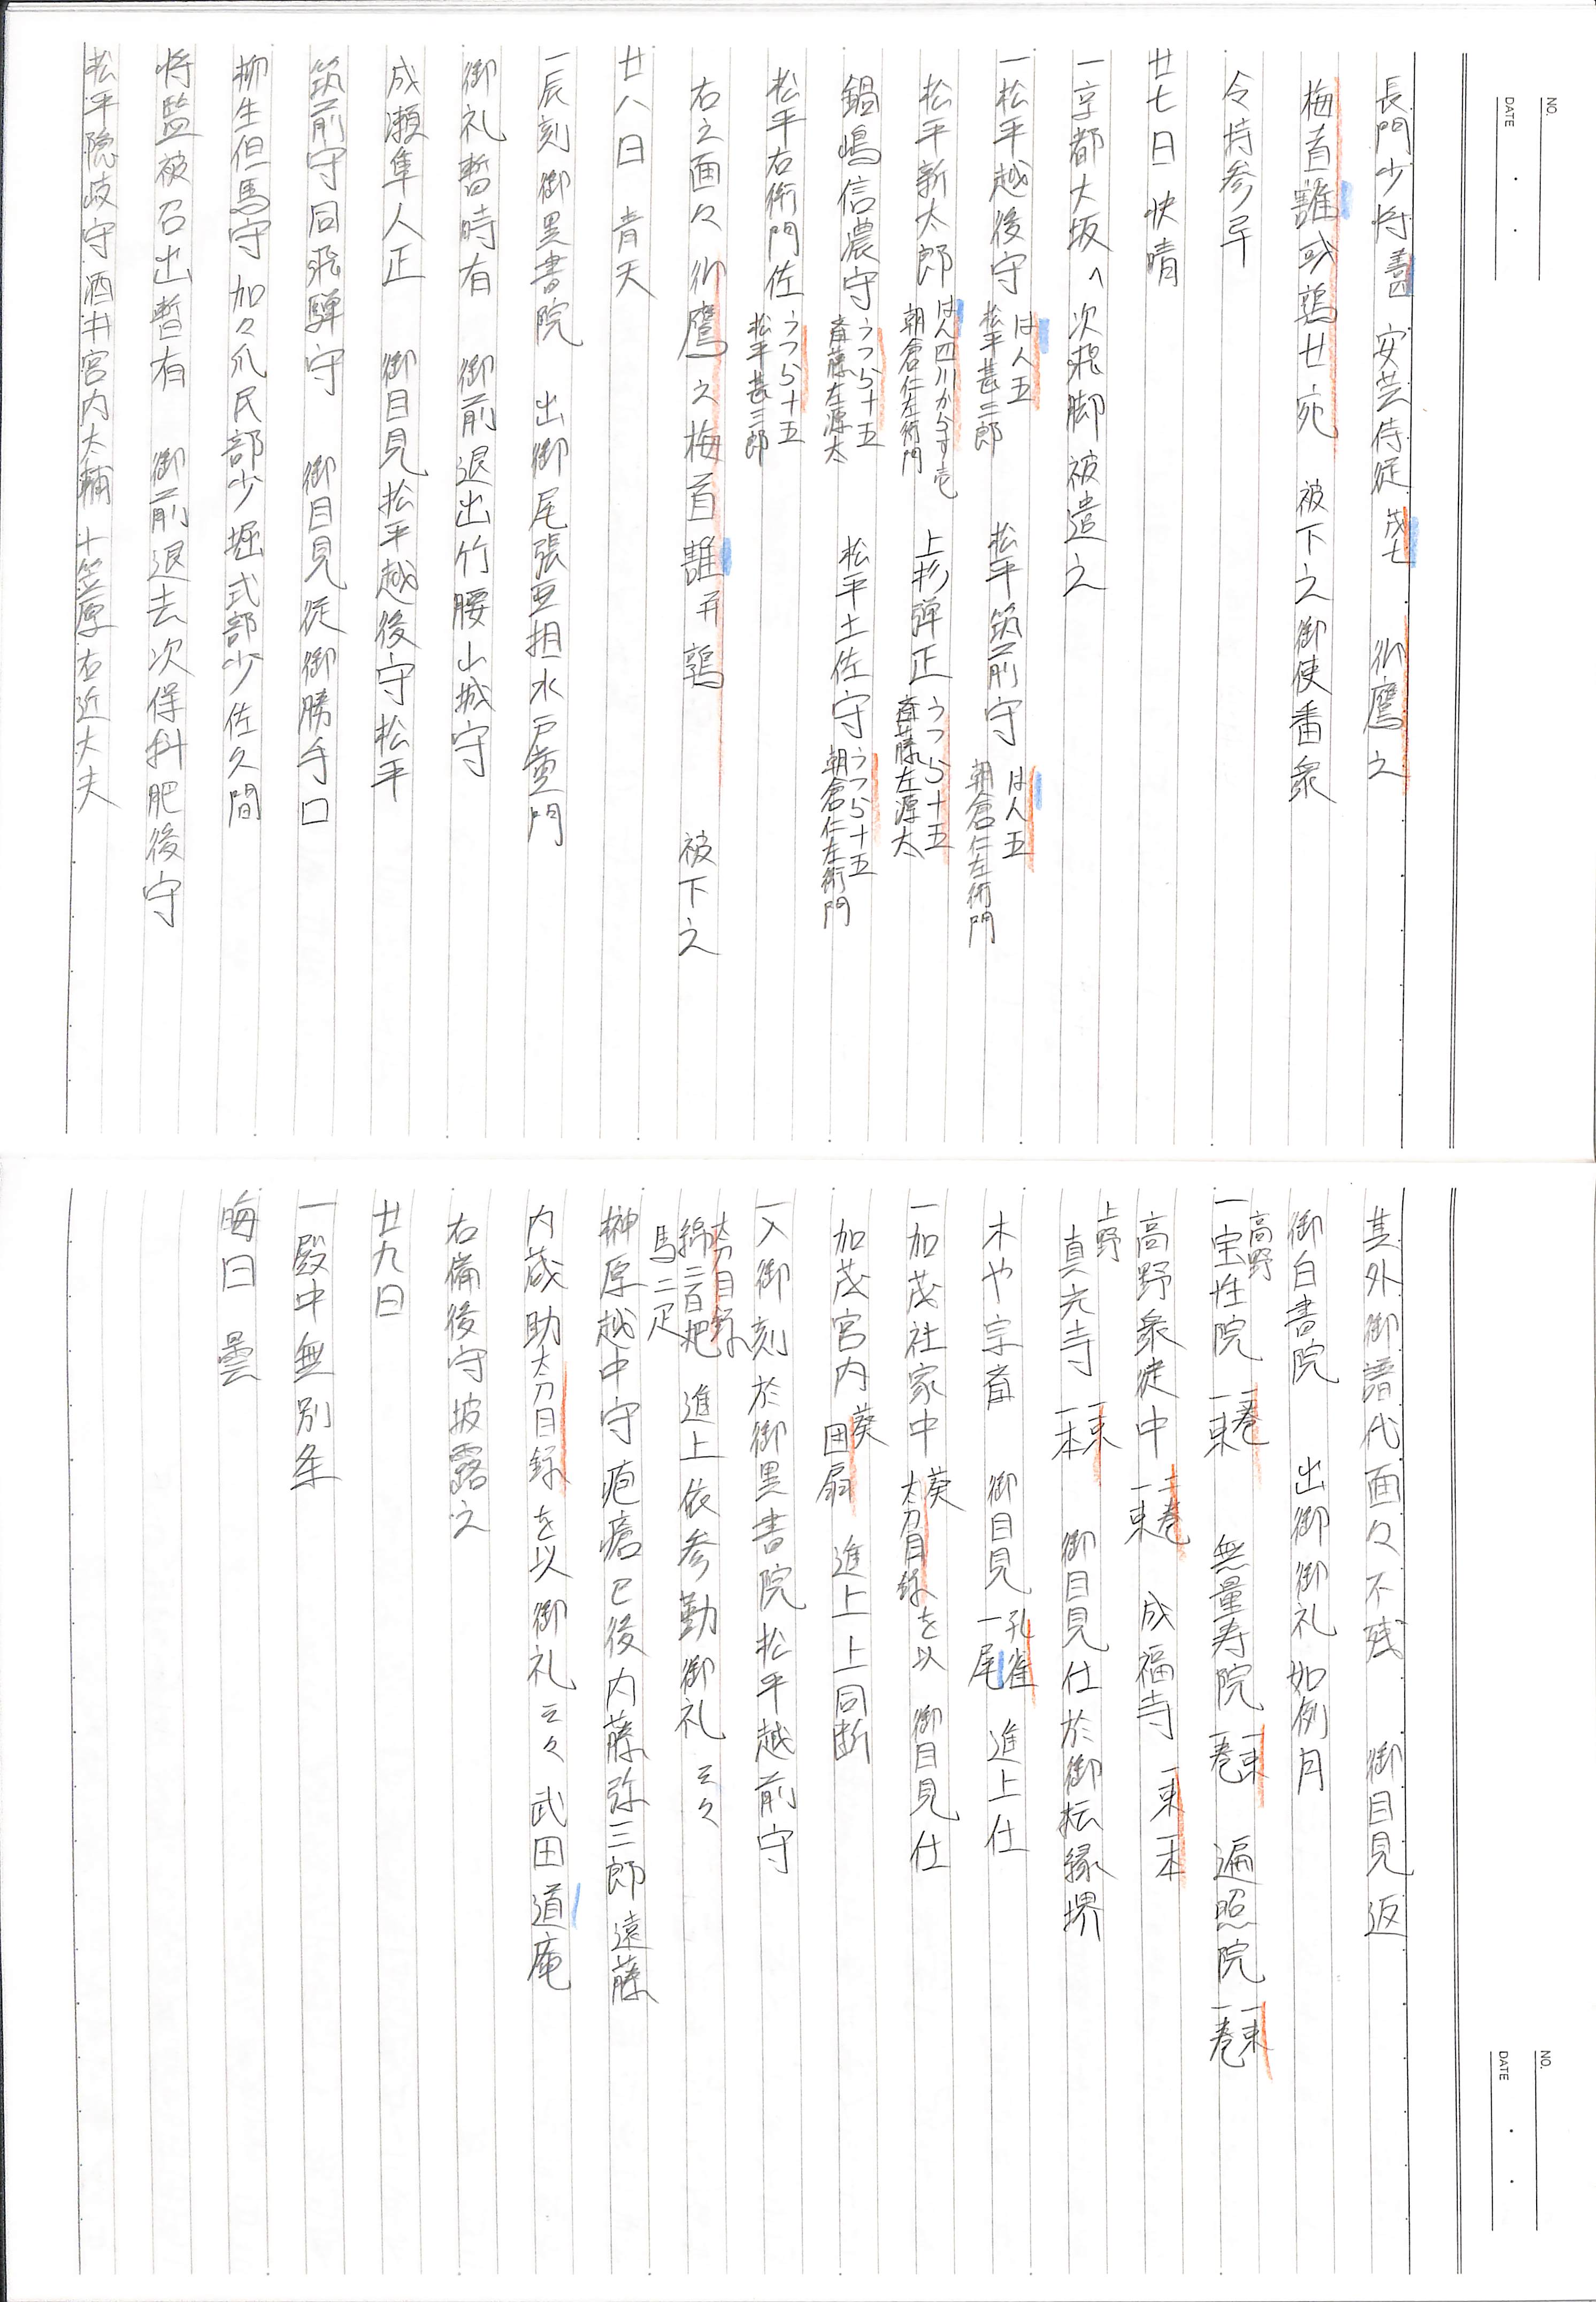 NO.
DATE
長門少将 安芸侍従 御鷹之
梅首誰或鶉廿宛 被下之御使番衆
令持参畢
廿七日 快晴
一京都大坂へ次飛脚被遣之
一松平越後守 はん五 松平甚三郎 松平筑前守 はん五 朝倉仁左衛門
松平新太郎 はん四川からす壱 朝倉仁左衛門 上杉弾正 うつら十五 斎藤左源太
鍋嶋信濃守 うつら十五 斎藤左源太 松平土佐守 うつら十五 朝倉仁左衛門
松平右衛門佐 うつら十五 松平甚三郎
右之面々 御鷹之梅首誰并鶉 被下之
廿八日 青天
一辰刻御黒書院 出御尾張亜相水戸黄門
御礼暫時有 御前退出竹腰山城守
成瀬隼人正 御目見松平越後守松平
筑前守同飛騨守 御目見従御勝手口
柳生但馬守加々爪民部少堀式部少佐久間
将監被召出暫有 御前退去次保科肥後守
松平隠岐守酒井宮内大輔小笠原右近大夫
NO.
DATE
其外御譜代面々不残 御目見返
御白書院 出御御礼如例月
一高野宝性院 一巻一束 無量寿院 一束一巻 遍照院 一束一巻
高野衆徒中 十巻一束 成福寺 一束一本
上野真光寺 一束一本 御目見仕於御転縁堺
木や宗首 御目見 孔雀一尾 進上仕
一加茂社家中 葵太刀目録を以 御目見仕
加茂宮内 葵団扇 進上上同断
一入御刻於御黒書院松平越前守
太刀目録綿二百把馬二疋 進上依参勤御礼云々
榊原越中守疱瘡已後内藤弥三郎遠藤
内蔵助太刀目録を以御礼云々武田道庵
右備後守披露之
廿九日
一殿中無別条
晦日 曇